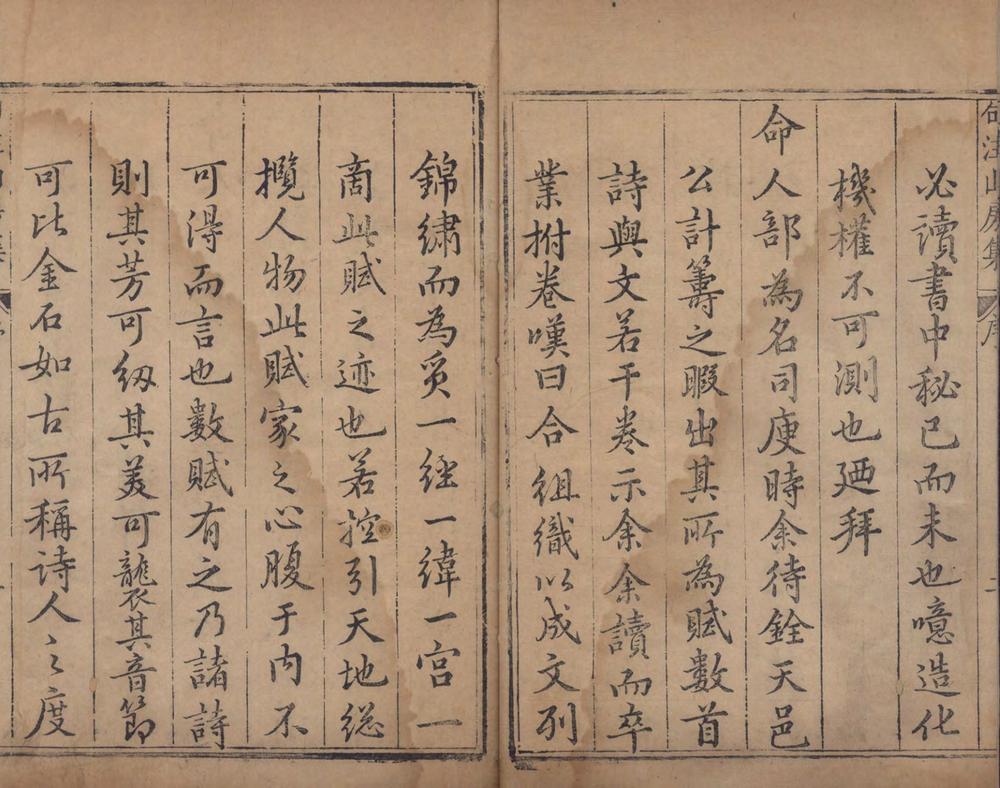 句注山房集 序
必讀書中秘已而未也噫造化
機權不可測也廼拜
命人部為名司庾時余待銓天邑
公計籌之暇出其所為賦數首
詩與文若干卷示余余讀而卒
業拊卷嘆曰合組織以成文列
錦繡而為質一經一緯一宫一
商此賦之迹也若控引天地総
攬人物此賦家之心腹于内不
可得而言也數賦有之乃諸詩
則其芳可紉其美可襲其音節
可比金石如古所稱詩人〻之度